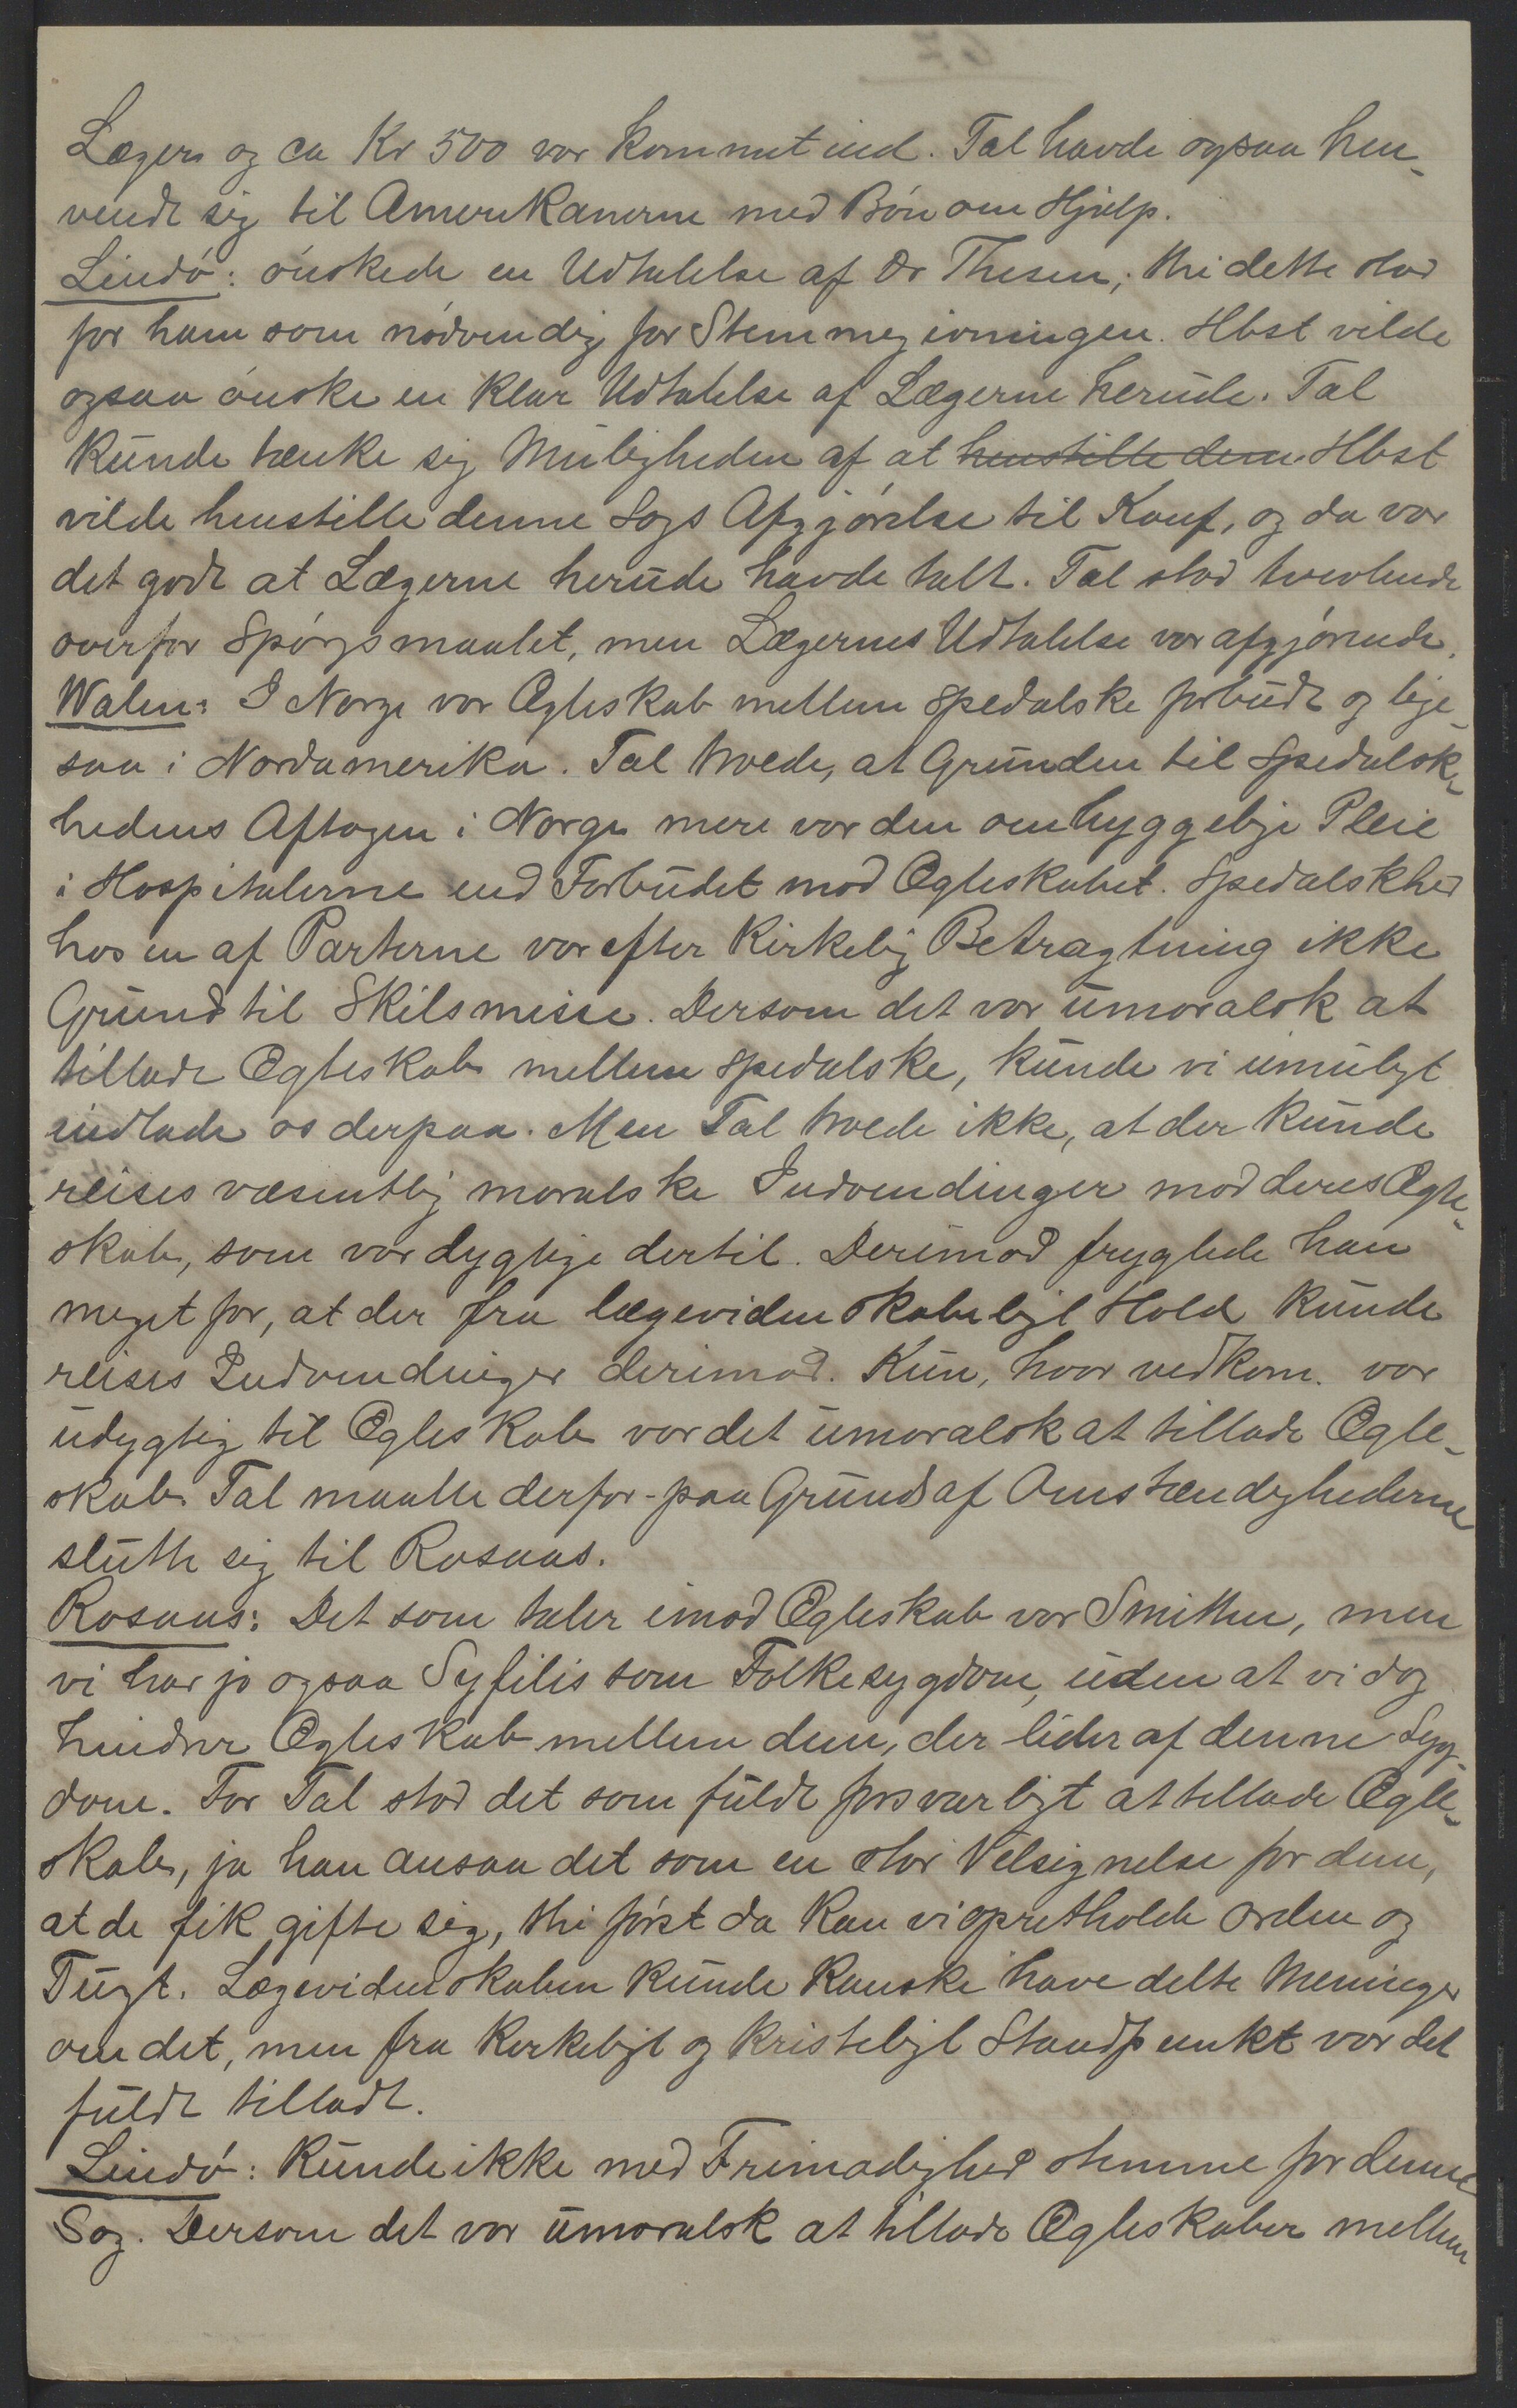 Læger og ca Kr 500 var kommet ind. Tal havde ogsaa hen-
vendt sig til Amerikanerne med Bön om Hjælp.
Lindö: önskede en Udtalelse af Dr Thesen; thi dette stod
for ham som nödvendig for Stemmegivningen. Hbst vilde
ogsaa önske en klar Udtalelse af Lægerne herude. Tal
kunde tænke sig Muligheden af at henstille denne Hbst
vilde henstille denne Sags Afgjörelse til Konf, og da var
det godt at Lægerne herude havde talt. Tal stod tvivlende
overfor Spörgsmaalet, men Lægernes Udtalelse var afgjörende.
Walen: I Norge var Ægteskab mellem Spedalske forbudt og lige-
saa i Nordamerika. Tal troede, at Grunden til Spedalsk-
hedens Aftagen i Norge mere var den omhyggelige Pleie
i Hospitalerne end Forbudet mod Ægteskabet. Spedalskhed
hos en af Parterne var efter Kirkelig Betragtning ikke
Grund til Skilsmisse. Dersom det var umoralsk at
tillade Ægteskab mellem Spedalske, kunde vi umuligt
indlade os derpaa. Men Tal troede ikke, at der kunde
reises væsentlig moralske Indvendinger mod deres Ægte-
skab, som var dygtige dertil. Derimod frygtede han
meget for, at der fra lægevidenskabeligt Hold kunde
reises Indvendinger derimod. Kun, hvor vedkom. var
udygtig til Ægteskab var det umoralsk at tillade Ægte-
skab. Tal maatte derfor - paa Grund af Omstændighederne
slutte sig til Rosaas.
Rosaas: Det som taler imod Ægteskab var Smitten, men
vi har jo ogsaa Syfilis som Folkesygdom, uden at vi dog
hindrer Ægteskab mellem dem, der lider af denne Syg-
dom. For Tal stod det som fuldt forsvarligt at tillade Ægte-
skab, ja han ansaa det som en stor Velsignelse for dem,
at de fik gifte sig, thi först da kan vi opretholde Orden og
Tugt. Lægevidenskaben kunde kanske have delte Meninger
om det, men fra Kirkeligt og kristeligt Standpunkt var det
fuldt tilladt.
Lindö: Kunde ikke med Frimodighed stemme for denne
Sag. Dersom det var umoralsk at tillade Ægteskaber mellem